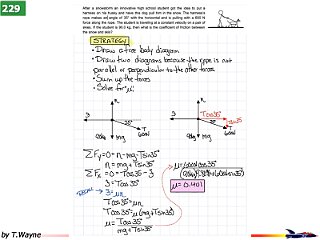 229
After a snowstorm an innovative high school student got the idea to put a
harness on his husky and have him pull him in the snow. The harness's
rope makes an angle of 35° with the horizontal and is pulling with a 600 N
force along the rope. The student is traveling at a constant velocity on a flat
area. If the student is 90.0 kg, then what is the coefficient of friction between
the snow and skis?
STRATEGY
• Draw a free body diagram
• Draw two diagrams because the rope is not
parallel or perpendicular to the other forces
• Sum up the forces
• Solve for "μ"
n
35°
T
600N
mg
n
Tcos35°
Tsin35°
35°
T
600N
mg
ΣFy=0=n-mg-Tsin35°
n=mg+Tsin35°
ΣFx=0=Tcos35°-
Tcos35°=μn
Tcos35°=μ(mg+Tsin35°)
μ=Tcos35°
mg+Tsin35°
μ=0.401
by T.Wayne